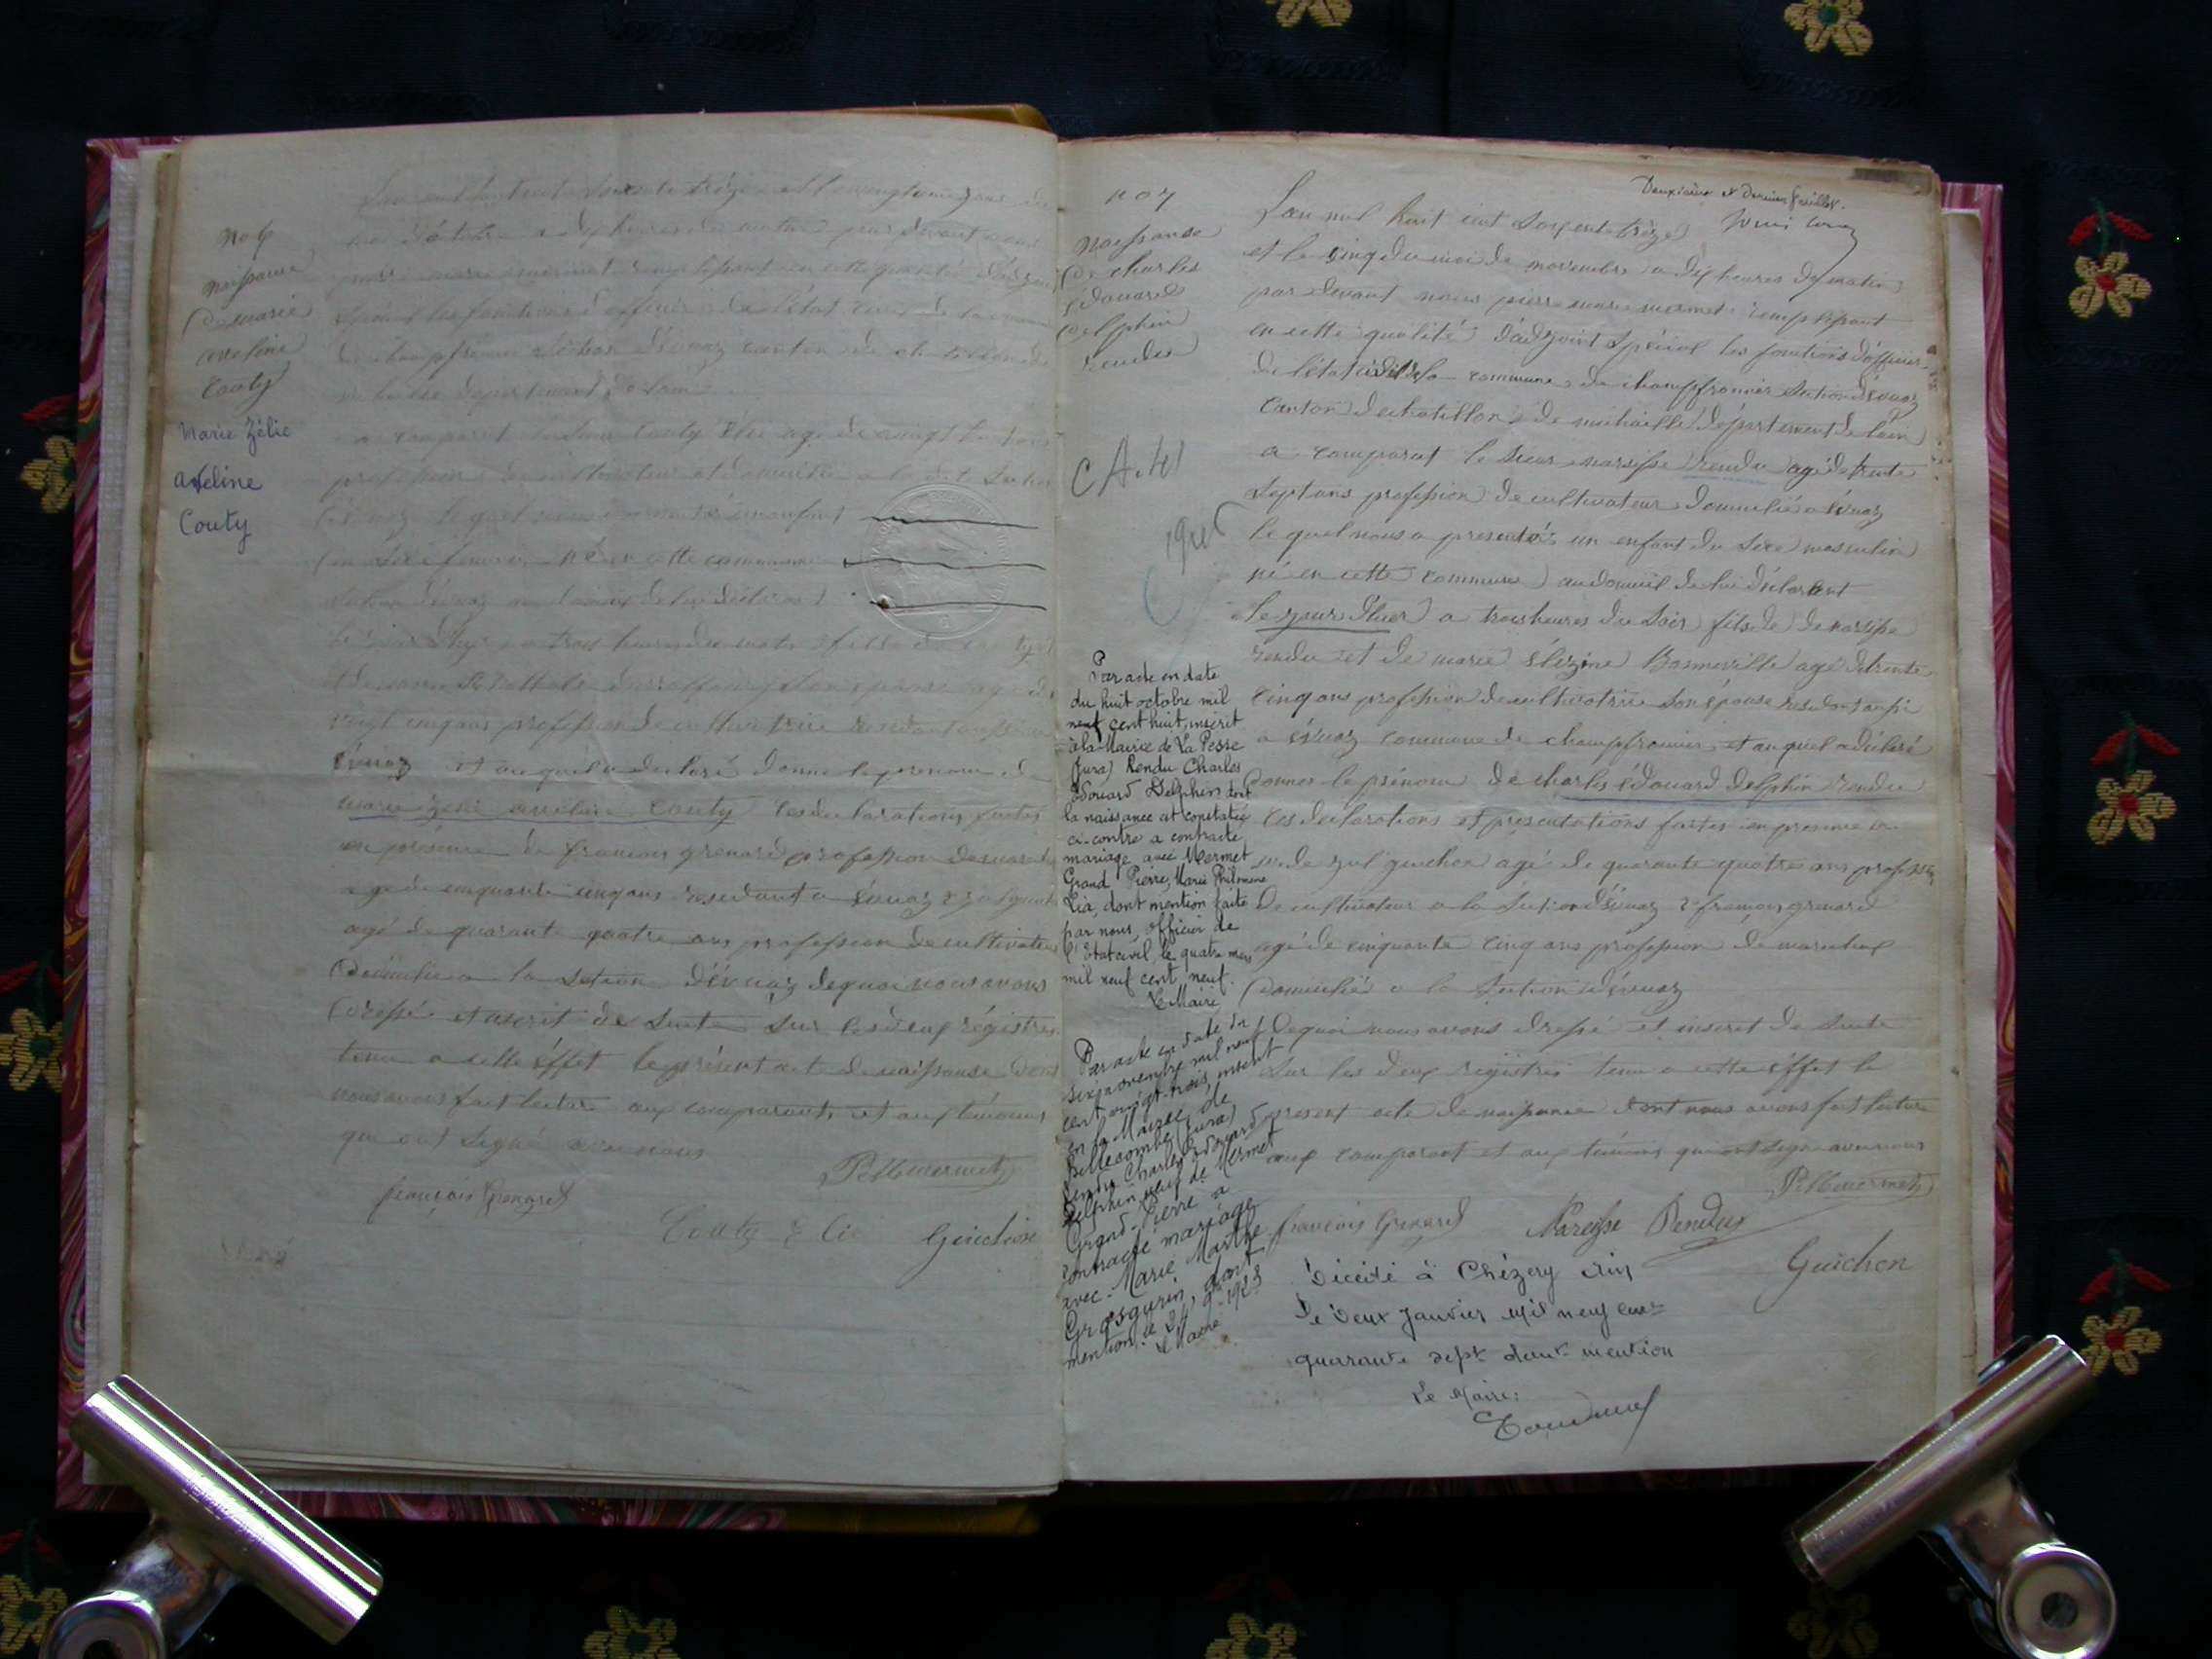 No 6
naissance
de marie
aveline
Couty
Marie Zélie
Aveline
Couty
L'an mil huit cent soixante treize et le vingt
mois d'octobre a dix heures du matin par devant nous
pierre marie mermet remplissant en cette qualité d'adjoint
spécial les fonctions d'officier de l'état civil de la commune
de champfromier section d'évuaz canton de chatillon de
michaille département de l'ain
a comparut le sieur Couty Élie agé de vingt huit ans
profession de cultivateur et domicilié a la dite section
d'évuaz le quel nous a présenté un enfant
du sexe féminin né en cette commune
section d'évuaz au domicile de lui déclarant
le jour d'hyer a trois heures du matin fille de
et de son épouse agé de
vingt cinq ans profession de cultivatrice résidant aussi a
Évuaz et au quel a déclaré donné le prenom de
marie zélie aveline Couty les declarations faites
en présence de francois grenard profession de marechal
agé de cinquante cinq ans résidant a Évuaz
agé de quarante quatre ans profession de cultivateur
domicilié a la section d'évuaz de quoi nous avons
dressé et inscrit de suite sur les deux régistres
tenu a cette éffet le présent acte de naissance dont
nous avons fait lecture aux comparants et aux témoins
qui ont signé avec nous
P M mermet
françois Grenard
Couty Élie Guichon
Deuxième et Dernier feuillet.
no 7
naissance
de charles
édouard
delphin
rendu
L'an mil huit cent soixente treize
et le cinq du moi de novembre a dix heures du matin
par devant nous pierre marie mermet remplissant
en cette qualité d'adjoint spécial les fonctions d'officier
de l'état civil de la commune de champfromier section d'évuaz
canton de chatillon de michaille département de l'ain
a comparut le sieur narcisse rendu agé de trente
sept ans profession de cultivateur domicilié a évuaz
le quel nous a presenté un enfant du sexe masculin
né en cette commune au domicil de lui déclarant
le jour d'hier a trois heures du soir fils de de narcisse
rendu et de marie élézine Bonneville agé de trente
cinq ans profession de cultivatrice son épouse residant aussi
a évuaz commune de champfromier et au quel a déclaré
donner le prénom de charles édouard delphin rendu
les declarations et presentations faites en presence de
guichon agé de quarante quatre ans profession
de cultivateur a la section d'évuaz 2° françois grenard
agé de cinquante cinq ans profession de marechal
domicilié a la section d'évuaz
De quoi nous avons dressé et inscret de suite
sur les deux régistres tenu a cette éffet le
present acte de naissance dont nous avons fait lecture
aux comparant et aux témoins qui ont signé avec nous
P M mermet
françois Grenard Narcisse Rendu
Guichon
Par acte en date
du huit octobre mil
neuf cent huit, inscrit
à la Mairie de La Pesse
(Jura) Rendu Charles
Édouard Delphin dont
la naissance est constatée
ci-contre a contracté
mariage avec Mermet
Grand Pierre, Marie Philomène
Lia, dont mention faite
par nous, officier de
l'État civil, le quatre mars
mil neuf cent neuf.
Le Maire
Par acte en date du
six novembre mil neuf
cent vingt-trois, inscrit
en la Mairie de
Bellecombe (Jura)
Rendu Charles Édouard
Delphin veuf de Mermet
Grand-Pierre a
contracté mariage
avec Marie Marthe
Grosgurin, dont
mention, le
Le Maire
Décédé à Chézery Ain
le deux Janvier mil neuf cent
quarante sept dont mention
Le Maire: